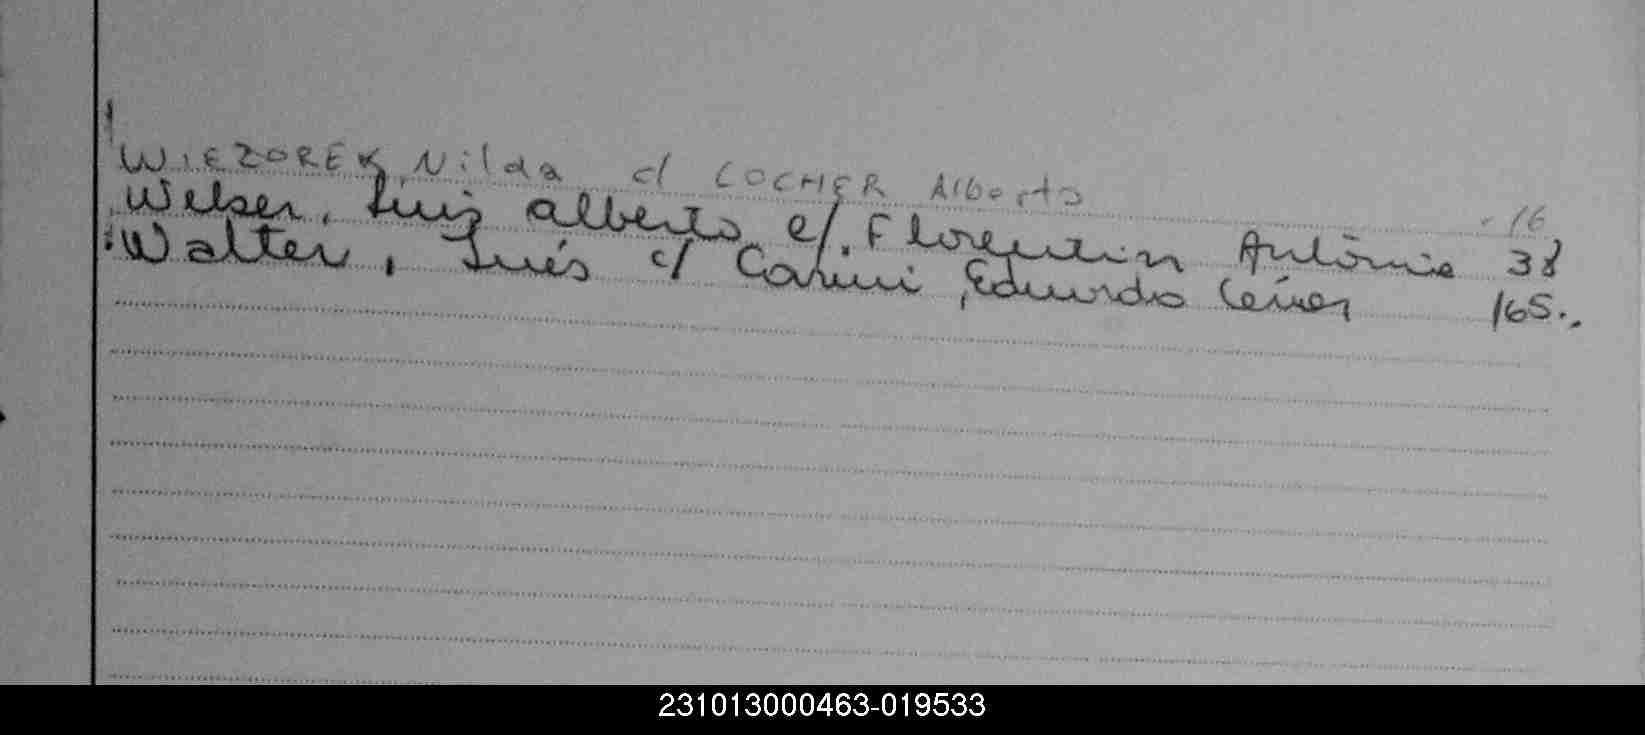 WIEZOREK, Nilda c/ LOCHER Alberto 16
Welser, Luis alberto c/. Florentin Antonia 38
Walter, Inés c/ Carini, Eduardo Cesar 165.
231013000463-019533